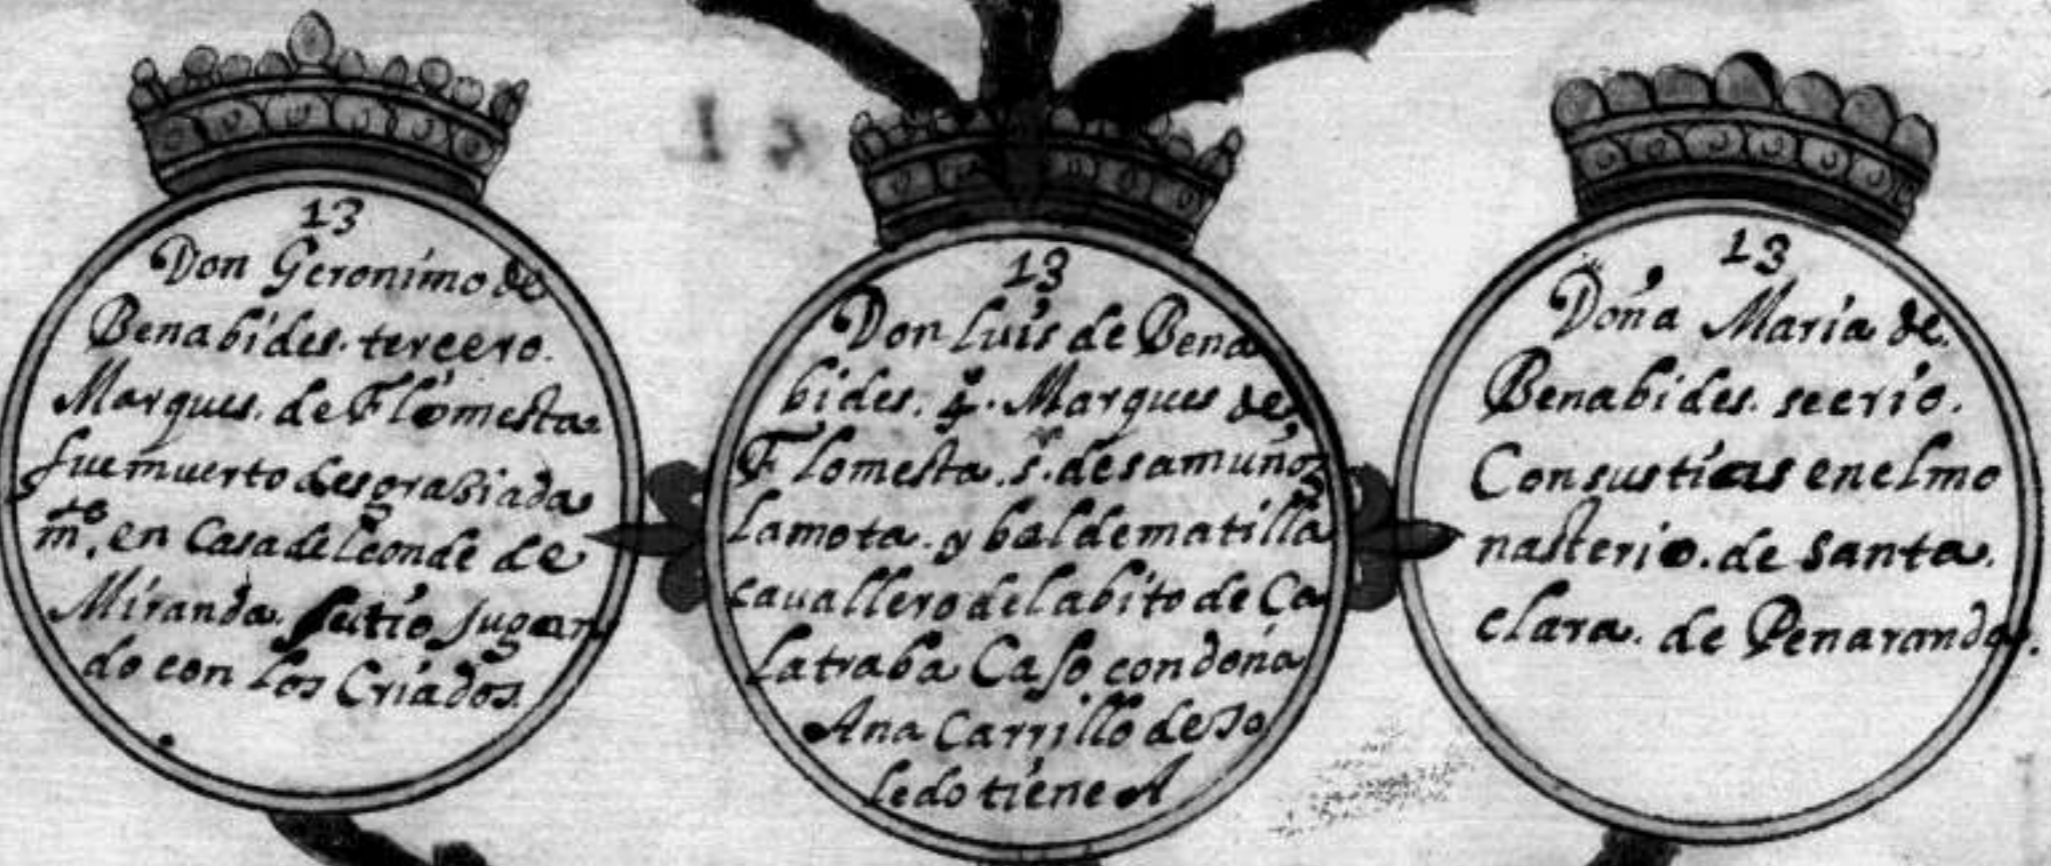 13
13
Don Geronimo de
Benabides. tercero.
Marques. de Flomesta
fue muerto desgrabiada
mte. en Casa del conde de
Miranda. jugan
do con los Criados.
13
Don luis de Bena
bides. 4. Marques de
Flomesta. s. de samuñoz
lamota. y baldematilla
cauallero del abito de Ca
latraba Caso con doña
Ana Carrillo de To
ledo tiene A
13
Doña Maria de
Benabides. se crio.
Con sus tias en el mo
nasterio. de santa.
clara. de Penaranda.